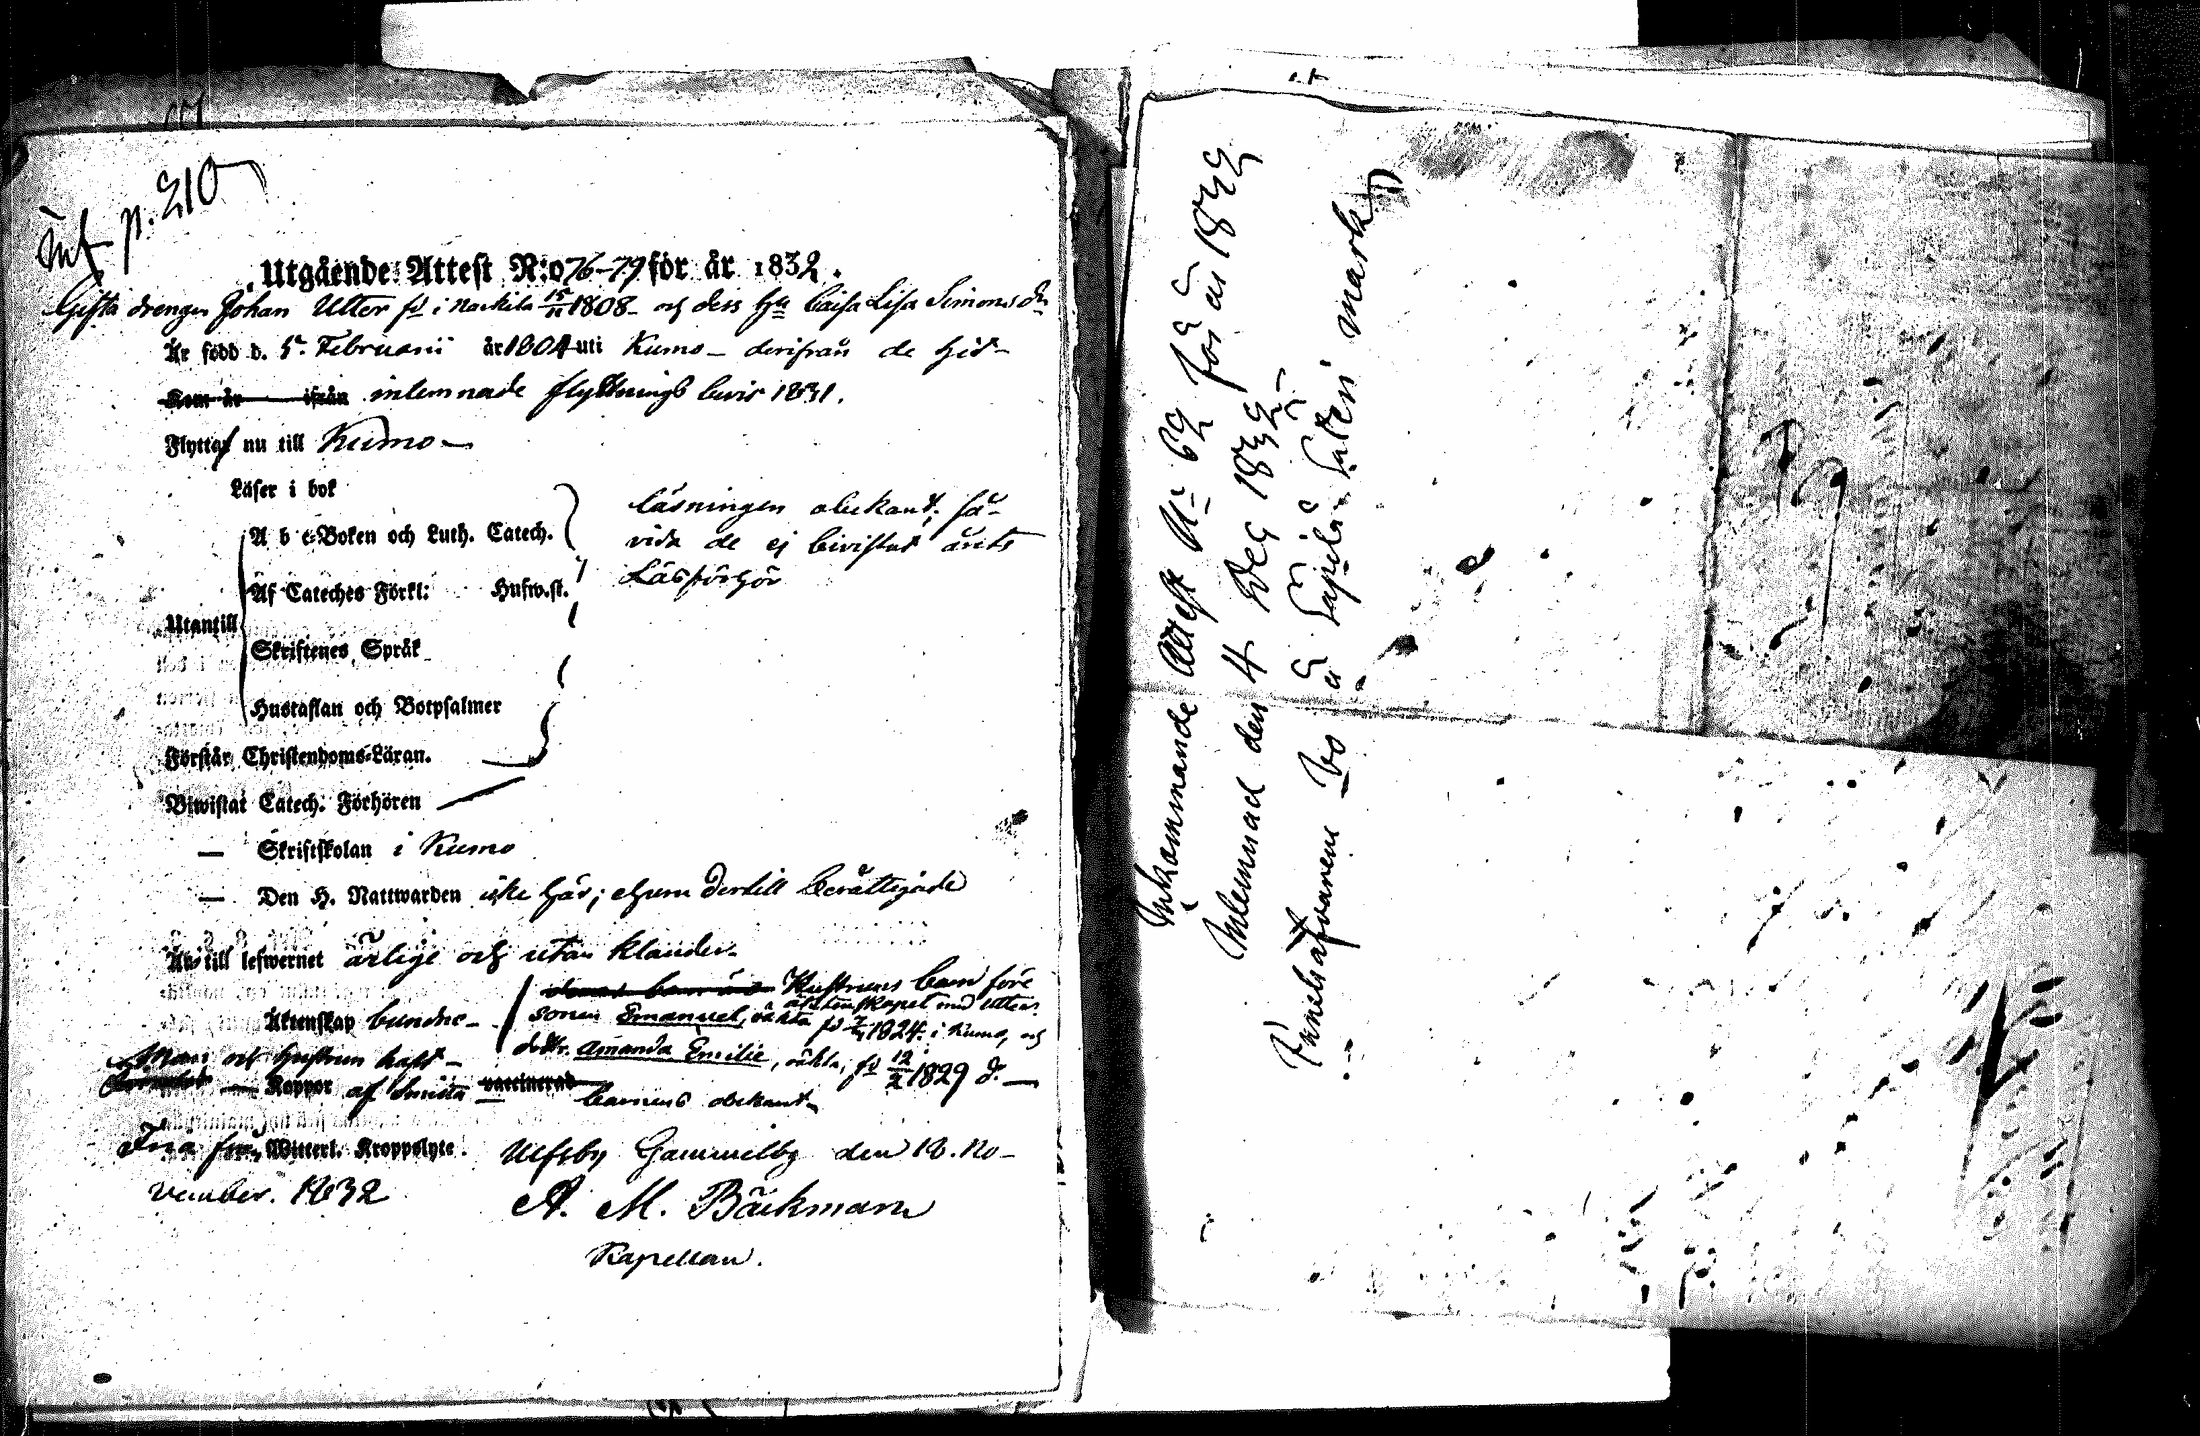 Inf p. 210
Utgående Attest N:o 76-79 för år 1832.
Gifta drengen Johan Utter fd i Nackila 15/11 1808 och dess Hu Caisa Lisa Simonsdr
Är född d. 5. Februarii år 1804 uti Kumo – derifrån de hit-
Kom år ifrån inlemnade flyttnings bevis 1831.
Flyttar nu till Kumo –
Läser i bok
A b c-Boken och Luth. Catech.
läsningen obekant, så-
vida de ej bivistat årets
Läsförhör
Af Cateches Förkl: Husw.st.
Utantill
Skriftenes Språk
Hustaflan och Botpsalmer
Förstår Christendoms-Läran.
Biwistat Catech. Förhören
— Skriftskolan i Kumo
— Den H. Nattwarden icke här; ehuru dertill berättigade
Är till lefwernet ärlige och utan klander.
Hustruns barn före
äktenskapet med Utter.
Äktenskap bundne – sonen Emanuel, oäkta fd 1824 i Kumo, och
Man och hustrun haft – dottr. Amanda Emilie, oäkta, fd 12/2 1829 d. —
Koppor af Smitta vaccinerad barnens obekant
Fria från Witterl. Kroppslyte. Ulfsby Gammelby den 18. No-
vember. 1832
A. M. Bäckman
Kapellan.
Inkommande Attest No 69 för år 1832
Inlemnad den 4 Dec 1832
Innehafvarene bo å Säpilä Säteri mark